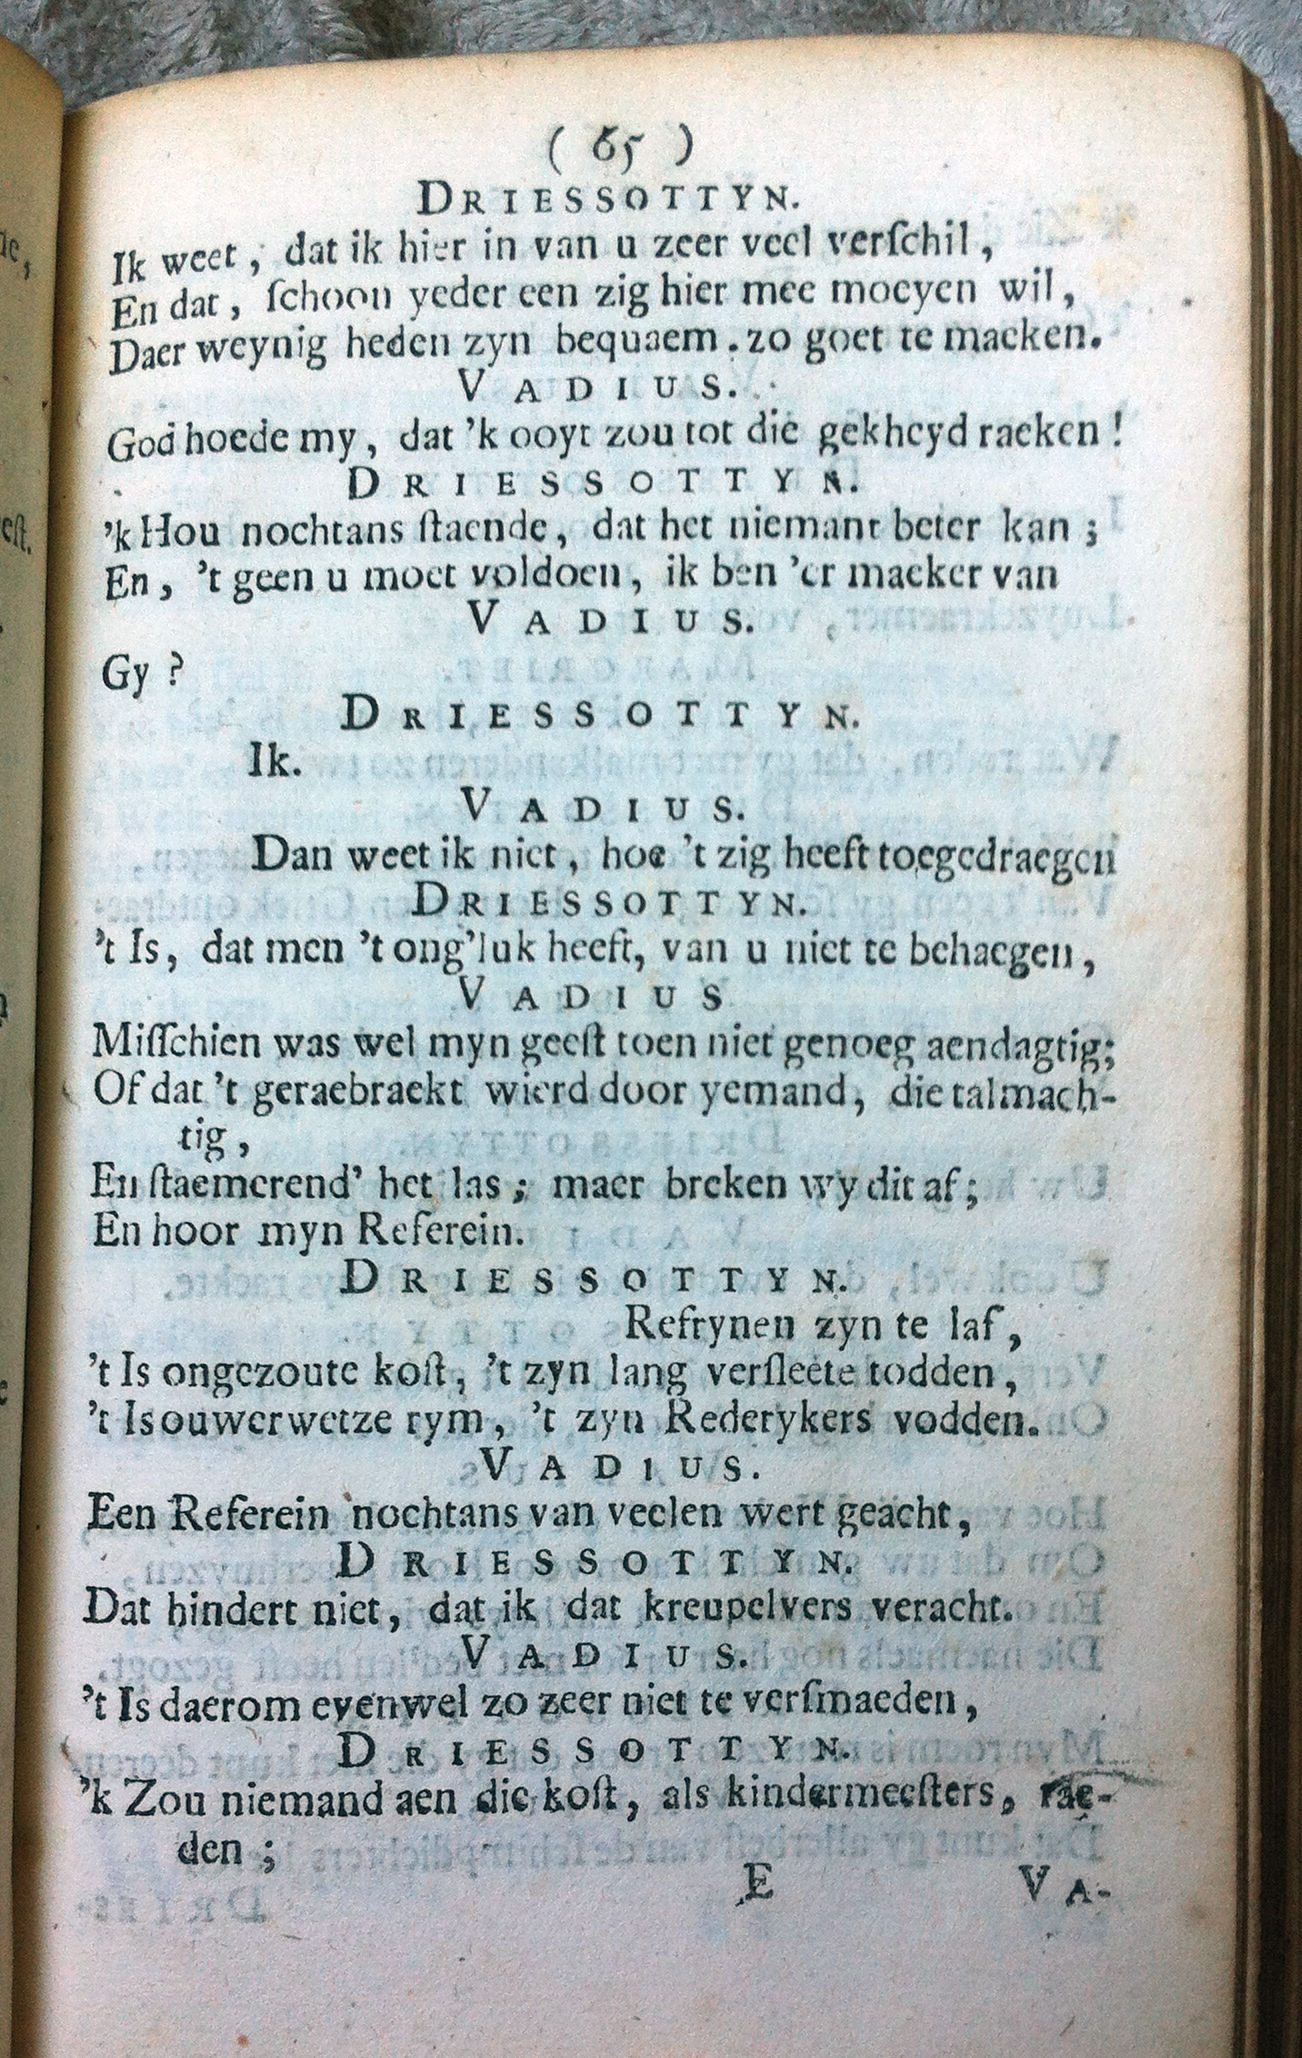 ( 65 )
DRIESSOTTYN.
Ik weet, dat ik hier in van u zeer veel verſchil,
En dat, ſchoon yeder een zig hier mee moeyen wil,
Daer weynig heden zyn bequaem. zo goet te maeken.
VADIUS.
God hoede my, dat 'k ooyt zou tot die gekheyd raeken!
DRIESSOTTYN.
'k Hou nochtans ſtaende, dat het niemant beter kan;
En, 't geen u moet voldoen, ik ben 'er maeker van
VADIUS.
Gy?
DRIESSOTTYN.
Ik.
VADIUS.
Dan weet ik niet, hoe 't zig heeft toegedraegen
DRIESSOTTYN.
't Is, dat men 't ong'luk heeft, van u niet te behaegen,
VADIUS
Miſſchien was wel myn geeſt toen niet genoeg aendagtig;
Of dat 't geraebraekt wierd door yemand, die talmach-
tig,
En ſtaemerend' het las; maer breken wy dit af;
En hoor myn Referein.
DRIESSOTTYN.
Refrynen zyn te laf,
't Is ongezoute koſt, 't zyn lang verſleete todden,
't Is ouwerwetze rym, 't zyn Rederykers vodden.
VADIUS.
Een Referein nochtans van veelen wert geacht,
DRIESSOTTYN.
Dat hindert niet, dat ik dat kreupelvers veracht.
VADIUS.
't Is daerom evenwel zo zeer niet te verſmaeden,
DRIESSOTTYN.
'k Zou niemand aen die koſt, als kindermeeſters, rae-
den;
E VA-